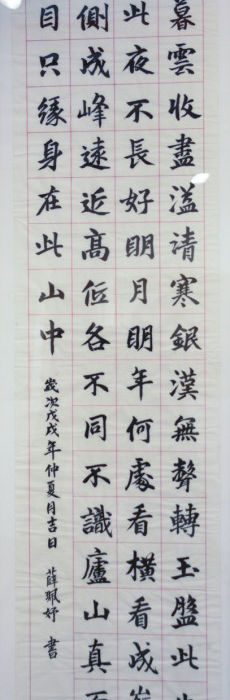 暮雲收盡溢清寒銀漢無聲轉玉盤此
此夜不長好明月明年何處看橫看成
側成峰遠近高低各不同不識廬山真
目只緣身在此山中
歲次戊戌年仲夏月吉日 薛珮妤 書